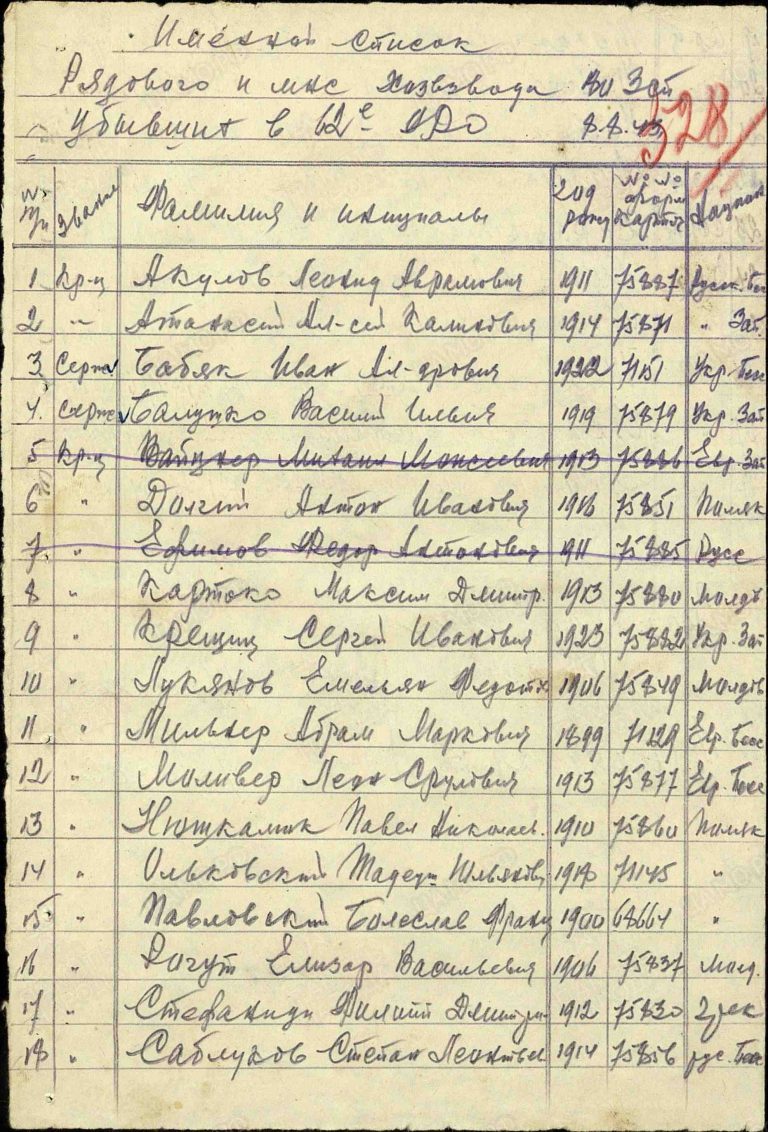 Именной список
Рядового и мнс хозвзвода 80 Зап
убывших в 62е
8.8.43
528
№ п/п Звание Фамилия и инициалы год рожд №№ форм карточ Национ
1 Кр-ц Акулов Леонид Аврамович 1911 75887 Русск. Бес
2 -"- Атанасий Ал-сей Калинович 1914 75871 " Зап.
3 Серж Бабяк Иван Ал-дрович 1922 71151 Укр. Бесс
4. Серж Балушко Василий Ильич 1919 75879 Укр. Зап
5 Кр-ц Вайцнер Михаил Моисеевич 1913 75886 Евр. Зап
6 " Долгий Антон Иванович 1916 75851 Поляк
7 " Ефимов Федор Антонович 1911 75885 Русс
8 " Картоко Максим Дмитр. 1913 75880 Молдв
9 " Крещиц Сергей Иванович 1923 75882 Укр. Зап
10 " Лукянов Емельян Федот 1906 75849 Молдв
11 " Мильнер Абрам Маркович 1899 71129 Евр. Бесс
12 " Моливер Леон Срулович 1913 75877 Евр. Бесс
13 " Павел Николаев. 1910 75860 Поляк
14 " Ольковский Тадеуш 1918 71145 "
15 " Павловский Болеслав Франц 1900 68664 "
16 " Рогут Елизар Васильевич 1906 75837 Молд.
17 " Стефаниди Филипп Дмитри 1912 75830 Грек
18 " Саблуков Степан Леонтьев 1914 75856 рус. Бесс